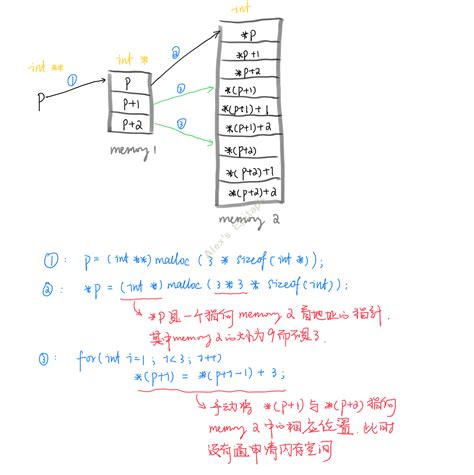 int
int **
①
int *
②
*p
*p+1
*p+2
*(p+1)
*(p+1)+1
*(p+1)+2
*(p+2)
*(p+2)+1
*(p+2)+2
p
p
p+1
p+2
③
③
memory 1
memory 2
Alex's
①: p = (int **) malloc (3 * sizeof(int *));
②: *p = (int *) malloc (3*3 * sizeof(int));
*p是一个指向 memory 2 首地址的指针,
其中 memory 2 的大小为9而不是3.
③: for(int i=1; i<3; i++)
*(p+i) = *(p+i-1) + 3;
手动将 *(p+1) 与 *(p+2) 指向
memory 2 中的相应位置, 此时
没有再申请内存空间